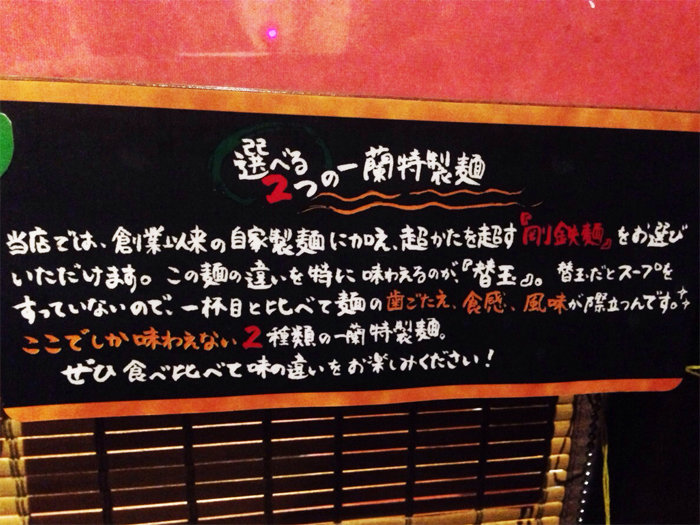 選べる
2つの一蘭特製麺
当店では、創業以来の自家製麺に加え、超かたを超す『剛鉄麺』をお選び
いただけます。この麺の違いを特に味わえるのが、『替玉』。替玉だとスープを
すっていないので、一杯目と比べて麺の歯ごたえ、食感、風味が際立つんです。
ここでしか味わえない2種類の一蘭特製麺。
ぜひ食べ比べて味の違いをお楽しみください！